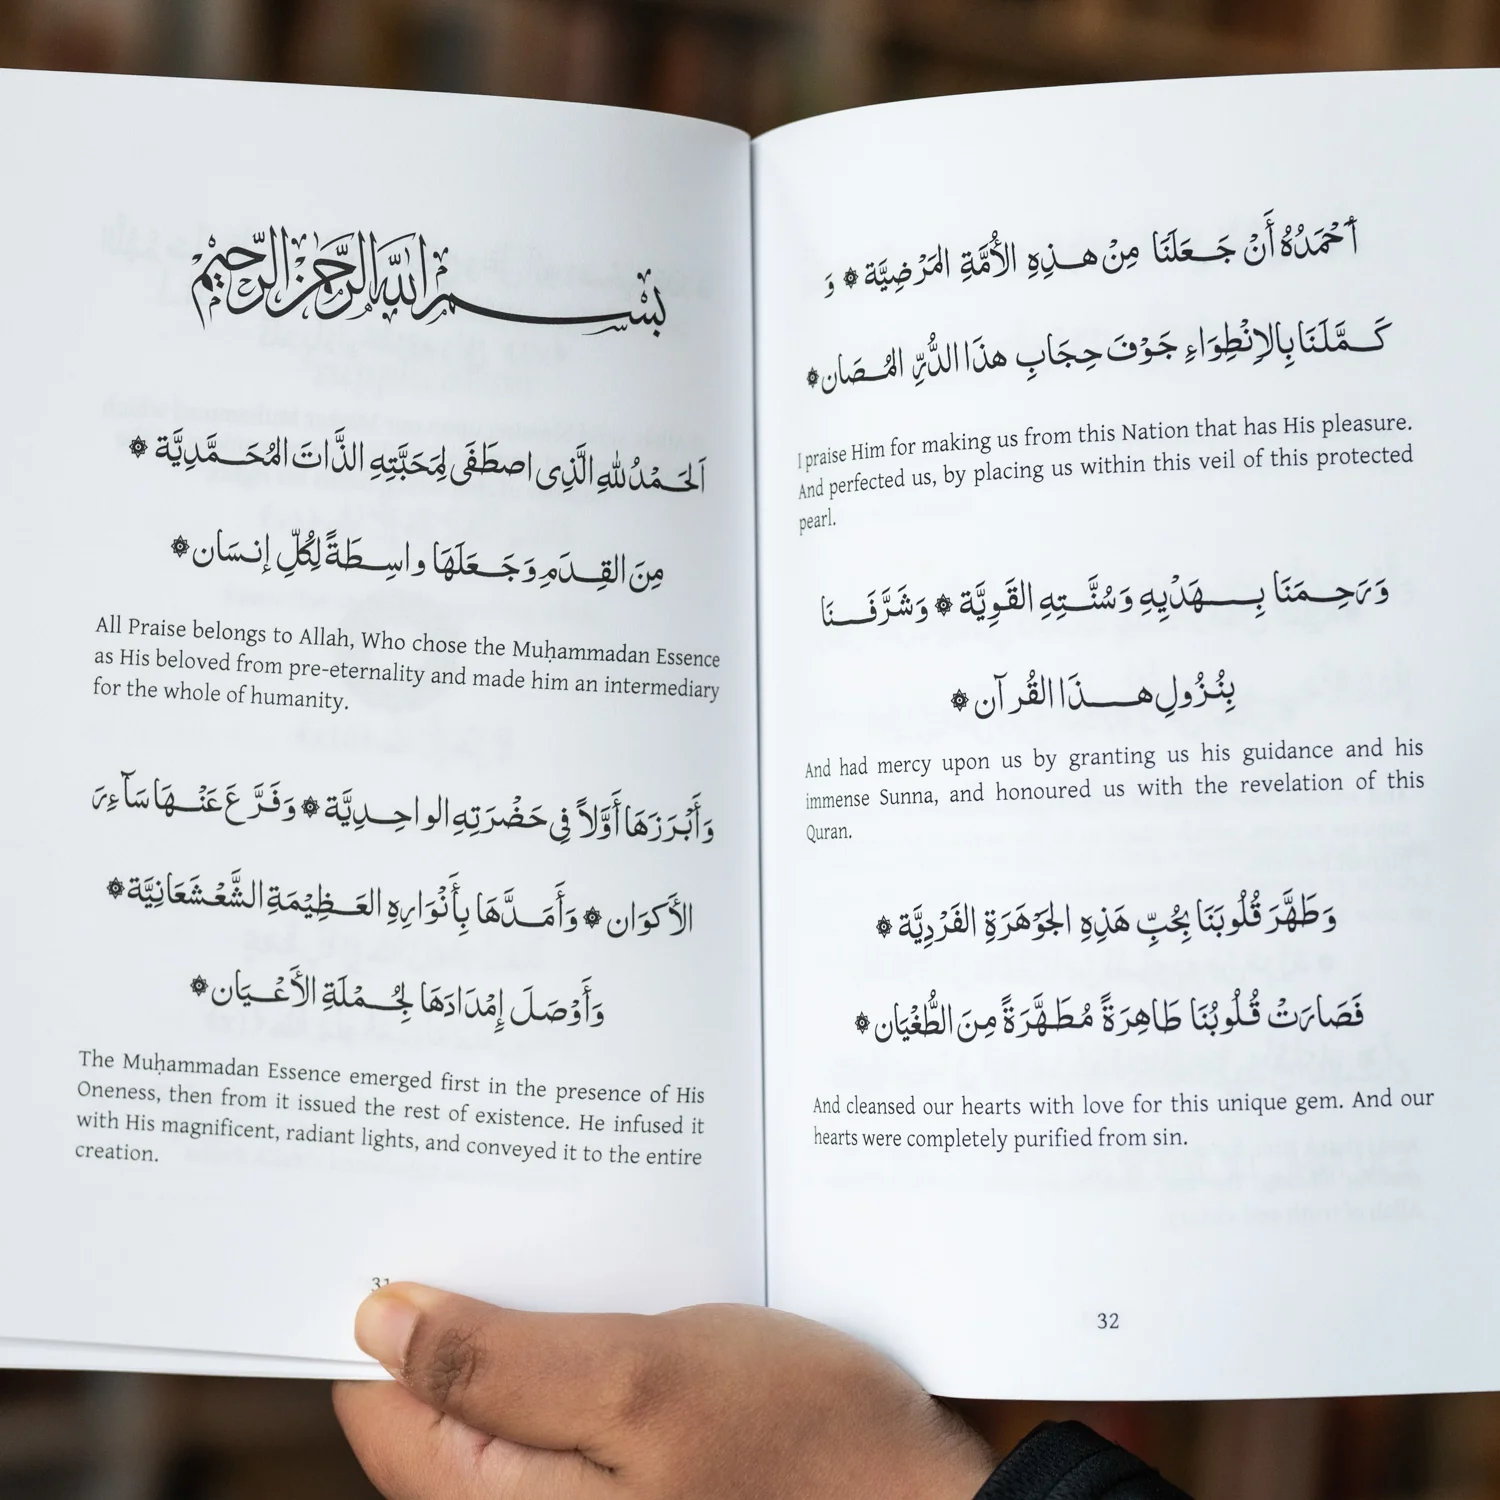 بِسْمِ اللّٰهِ الرَّحْمٰنِ الرَّحِيْمِ
اَلحَمْدُ للهِ الَّذِى اصطَفَى لِمَحَبَّتِهِ الذَّاتَ المُحَمَّدِيَّة ۞
مِنَ القِدَمِ وَجَعَلَهَا واسِطَةً لِكُلِّ إنسَان ۞
All Praise belongs to Allah, Who chose the Muḥammadan Essence
as His beloved from pre-eternality and made him an intermediary
for the whole of humanity.
وَأَبْرَزَهَا أَوَّلاً فِي حَضْرَتِهِ الواحِدِيَّة ۞ وَفَرَّعَ عَنْهَا سَآءِرَ
الأَكوَان ۞ وَأَمَدَّهَا بِأَنْوَارِهِ العَظِيْمَةِ الشَّعْشَعَانِيَّة ۞
وَأَوْصَلَ إِمْدَادَهَا لِجُمْلَةِ الأَعْيَان ۞
The Muḥammadan Essence emerged first in the presence of His
Oneness, then from it issued the rest of existence. He infused it
with His magnificent, radiant lights, and conveyed it to the entire
creation.
31
أَحْمَدُهُ أَنْ جَعَلَنَا مِنْ هذِهِ الأُمَّةِ المَرْضِيَّة ۞ وَ
كَمَّلَنَا بِالِانْطِوَاءِ جَوْفَ حِجَابِ هذَا الدُّرِّ المُصَان ۞
I praise Him for making us from this Nation that has His pleasure.
And perfected us, by placing us within this veil of this protected
pearl.
وَرَحِمَنَا بِهَدْيِهِ وَسُنَّتِهِ القَوِيَّة ۞ وَشَرَّفَنَا
بِنُزُولِ هذَا القُرآن ۞
And had mercy upon us by granting us his guidance and his
immense Sunna, and honoured us with the revelation of this
Quran.
وَطَهَّرَ قُلُوبَنَا بِحُبِّ هَذِهِ الجَوْهَرَةِ الفَرْدِيَّة ۞
فَصَارَتْ قُلُوبُنَا طَاهِرَةً مُطَهَّرَةً مِنَ الطُّغْيَان ۞
And cleansed our hearts with love for this unique gem. And our
hearts were completely purified from sin.
32